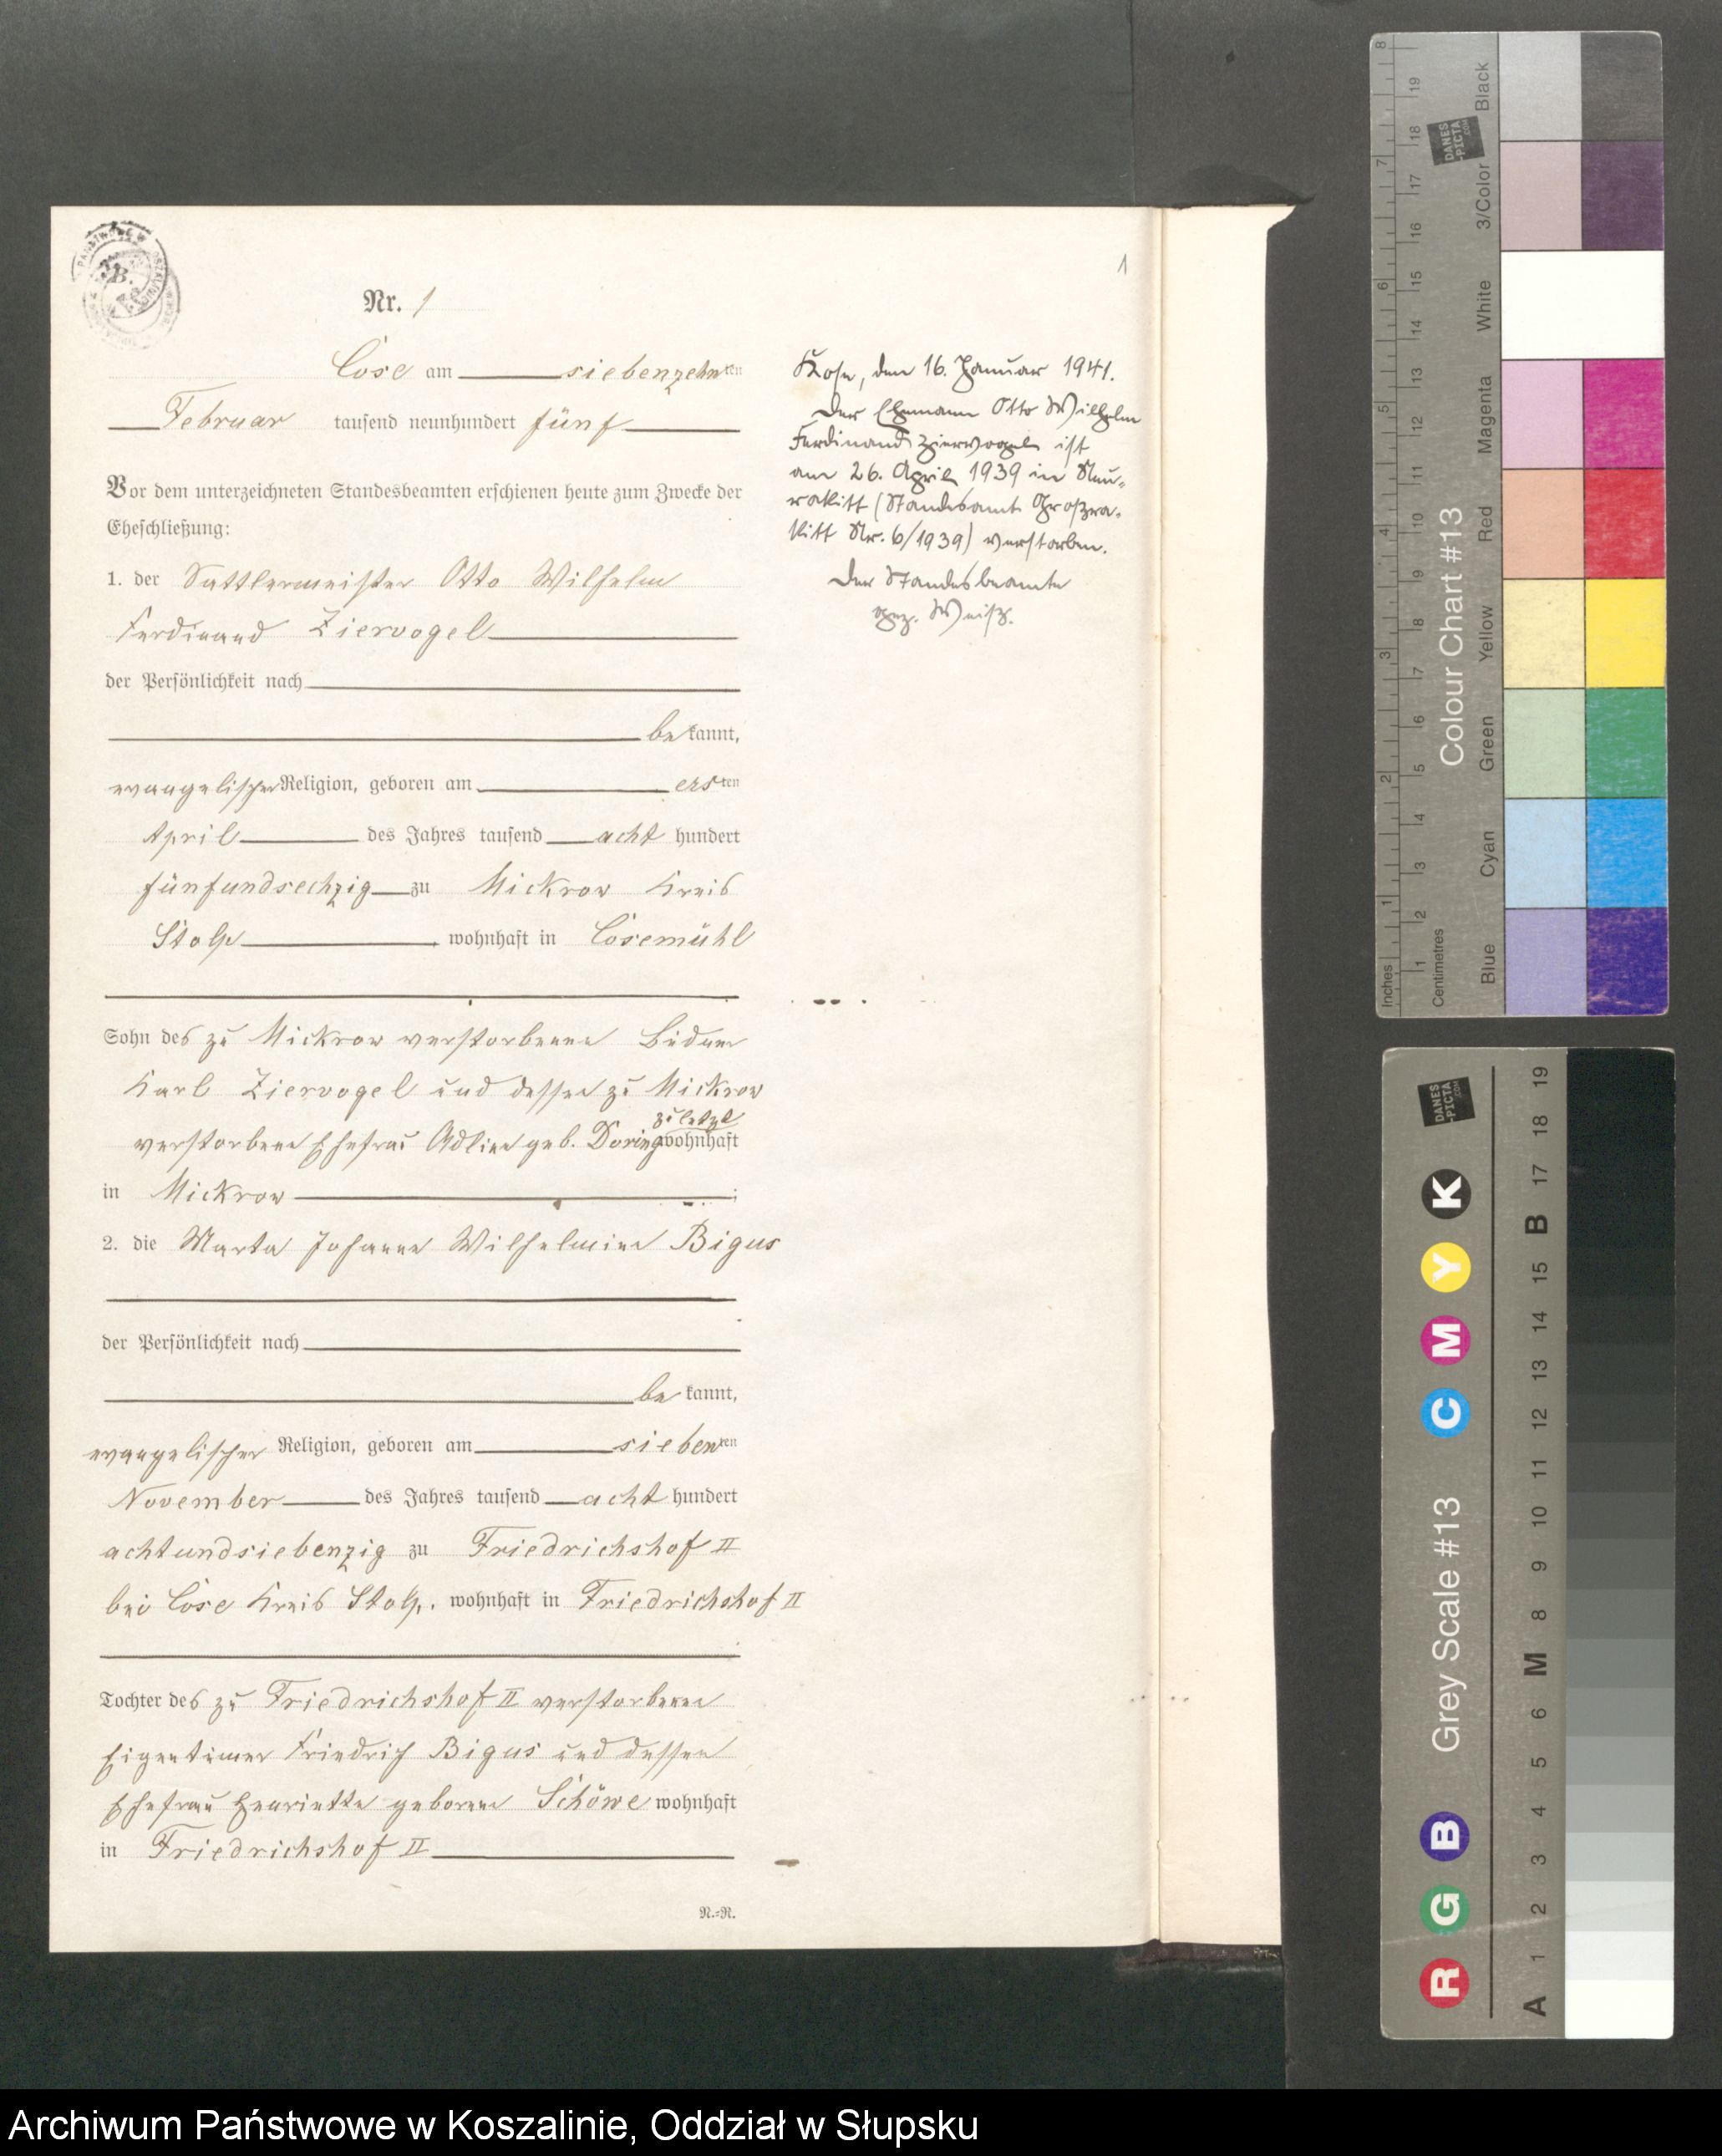 1
Nr. 1
Cose am siebenzehnten
Februar tausend neunhundert fünf
Vor dem unterzeichneten Standesbeamten erschienen heute zum Zwecke der
Eheschließung:
1. der Sattlermeister Otto Wilhelm
Ferdinand Ziervogel
der Persönlichkeit nach
be kannt,
evangelischer Religion, geboren am ersten
April des Jahres tausend acht hundert
fünfundsechzig zu Mickrow Kreis
Stolp, wohnhaft in Cosemühl
Sohn des zu Mickrow verstorbenen Büdner
Karl Ziervogel und dessen zu Mickrow
zuletzt
verstorbene Ehefrau Adline geb. Doring wohnhaft
in Mickrow ;
2. die Marta Johanne Wilhelmine Bigus
der Persönlichkeit nach
be kannt,
evangelischer Religion, geboren am siebenten
November des Jahres tausend acht hundert
achtundsiebenzig zu Friedrichshof II
bei Cose Kreis Stolp, wohnhaft in Friedrichshof II
Tochter des zu Friedrichshof II verstorbenen
Eigentümer Friedrich Bigus und dessen
Ehefrau Henriette geborene Schöwe wohnhaft
in Friedrichshof II
N.=N.
Kose, den 16. Januar 1941.
Der Ehemann Otto Wilhelm
Ferdinand Ziervogel ist
am 26. April 1939 in Neu-
rakitt (Standesamt Großra-
kitt Nr. 6/1939) verstorben.
Der Standesbeamte
gez. Weiß.
Inches 1 2 3 4 5 6 7 8
Centimetres 1 2 3 4 5 6 7 8 9 10 11 12 13 14 15 16 17 18 19
Colour Chart #13
Blue Cyan Green Yellow Red Magenta White 3/Color Black
DANES
-PICTA
.COM
Grey Scale #13
R G B C M Y K
A 1 2 3 4 5 6 M 8 9 10 11 12 13 14 15 B 17 18 19
DANES
-PICTA
.COM
Archiwum Państwowe w Koszalinie, Oddział w Słupsku